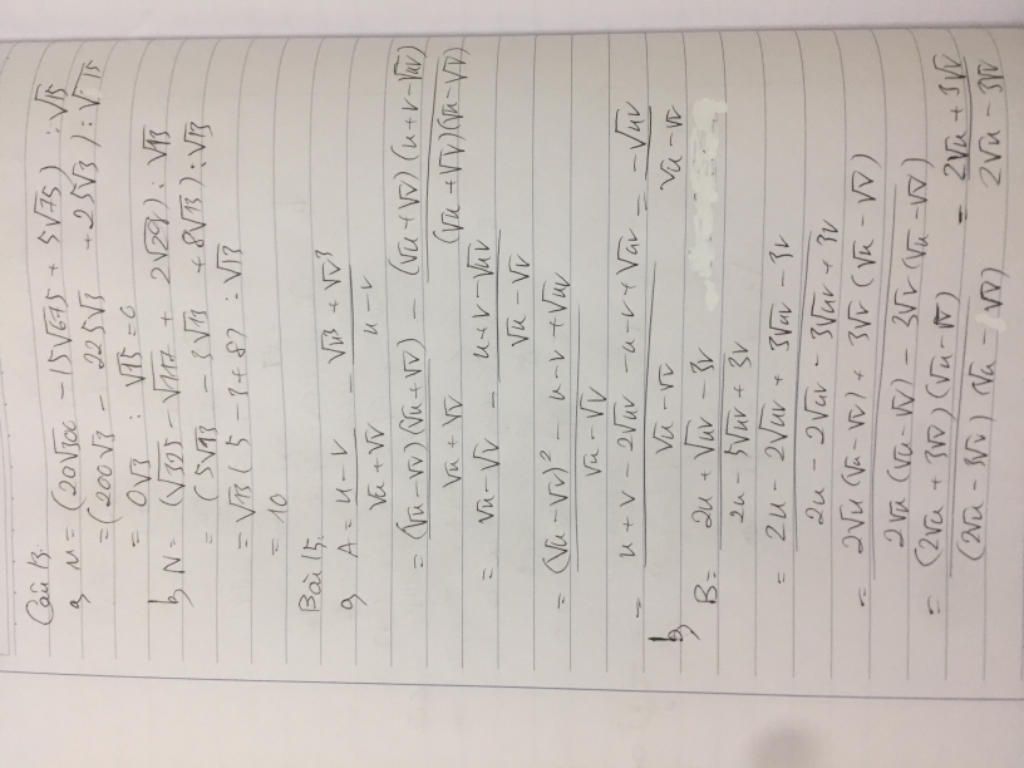 Câu 13.
a, M = (20√300 - 15√675 + 5√75) : √15
= (200√3 - 225√3 + 25√3) : √15
= 0√3 : √15 = 0
b, N = (√325 - √117 + 2√208) : √13
= (5√13 - 3√13 + 8√13) : √13
= √13 (5 - 3 + 8) : √13
= 10
Bài 15.
a, A = (u - v)/(√u + √v) - (√u³ + √v³)/(u - v)
= (√u - √v)(√u + √v)/(√u + √v) - (√u + √v)(u + v - √uv)/((√u + √v)(√u - √v))
= √u - √v - (u + v - √uv)/(√u - √v)
= ((√u - √v)² - u - v + √uv)/(√u - √v)
= (u + v - 2√uv - u - v + √uv)/(√u - √v) = -√uv/(√u - √v)
b, B = (2u + √uv - 3v)/(2u - 5√uv + 3v)
= (2u - 2√uv + 3√uv - 3v)/(2u - 2√uv - 3√uv + 3v)
= (2√u(√u - √v) + 3√v(√u - √v))/(2√u(√u - √v) - 3√v(√u - √v))
= (2√u + 3√v)(√u - √v)/((2√u - 3√v)(√u - √v)) = (2√u + 3√v)/(2√u - 3√v)